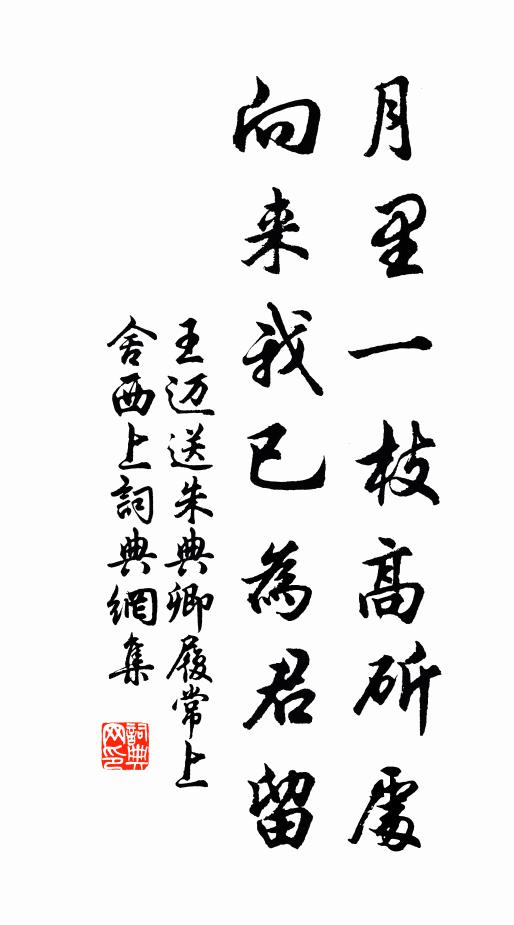 月里一枝高斫處
向来我已為君留
王迈送朱典卿履常上
舍西上詞典網集
詞典
网印